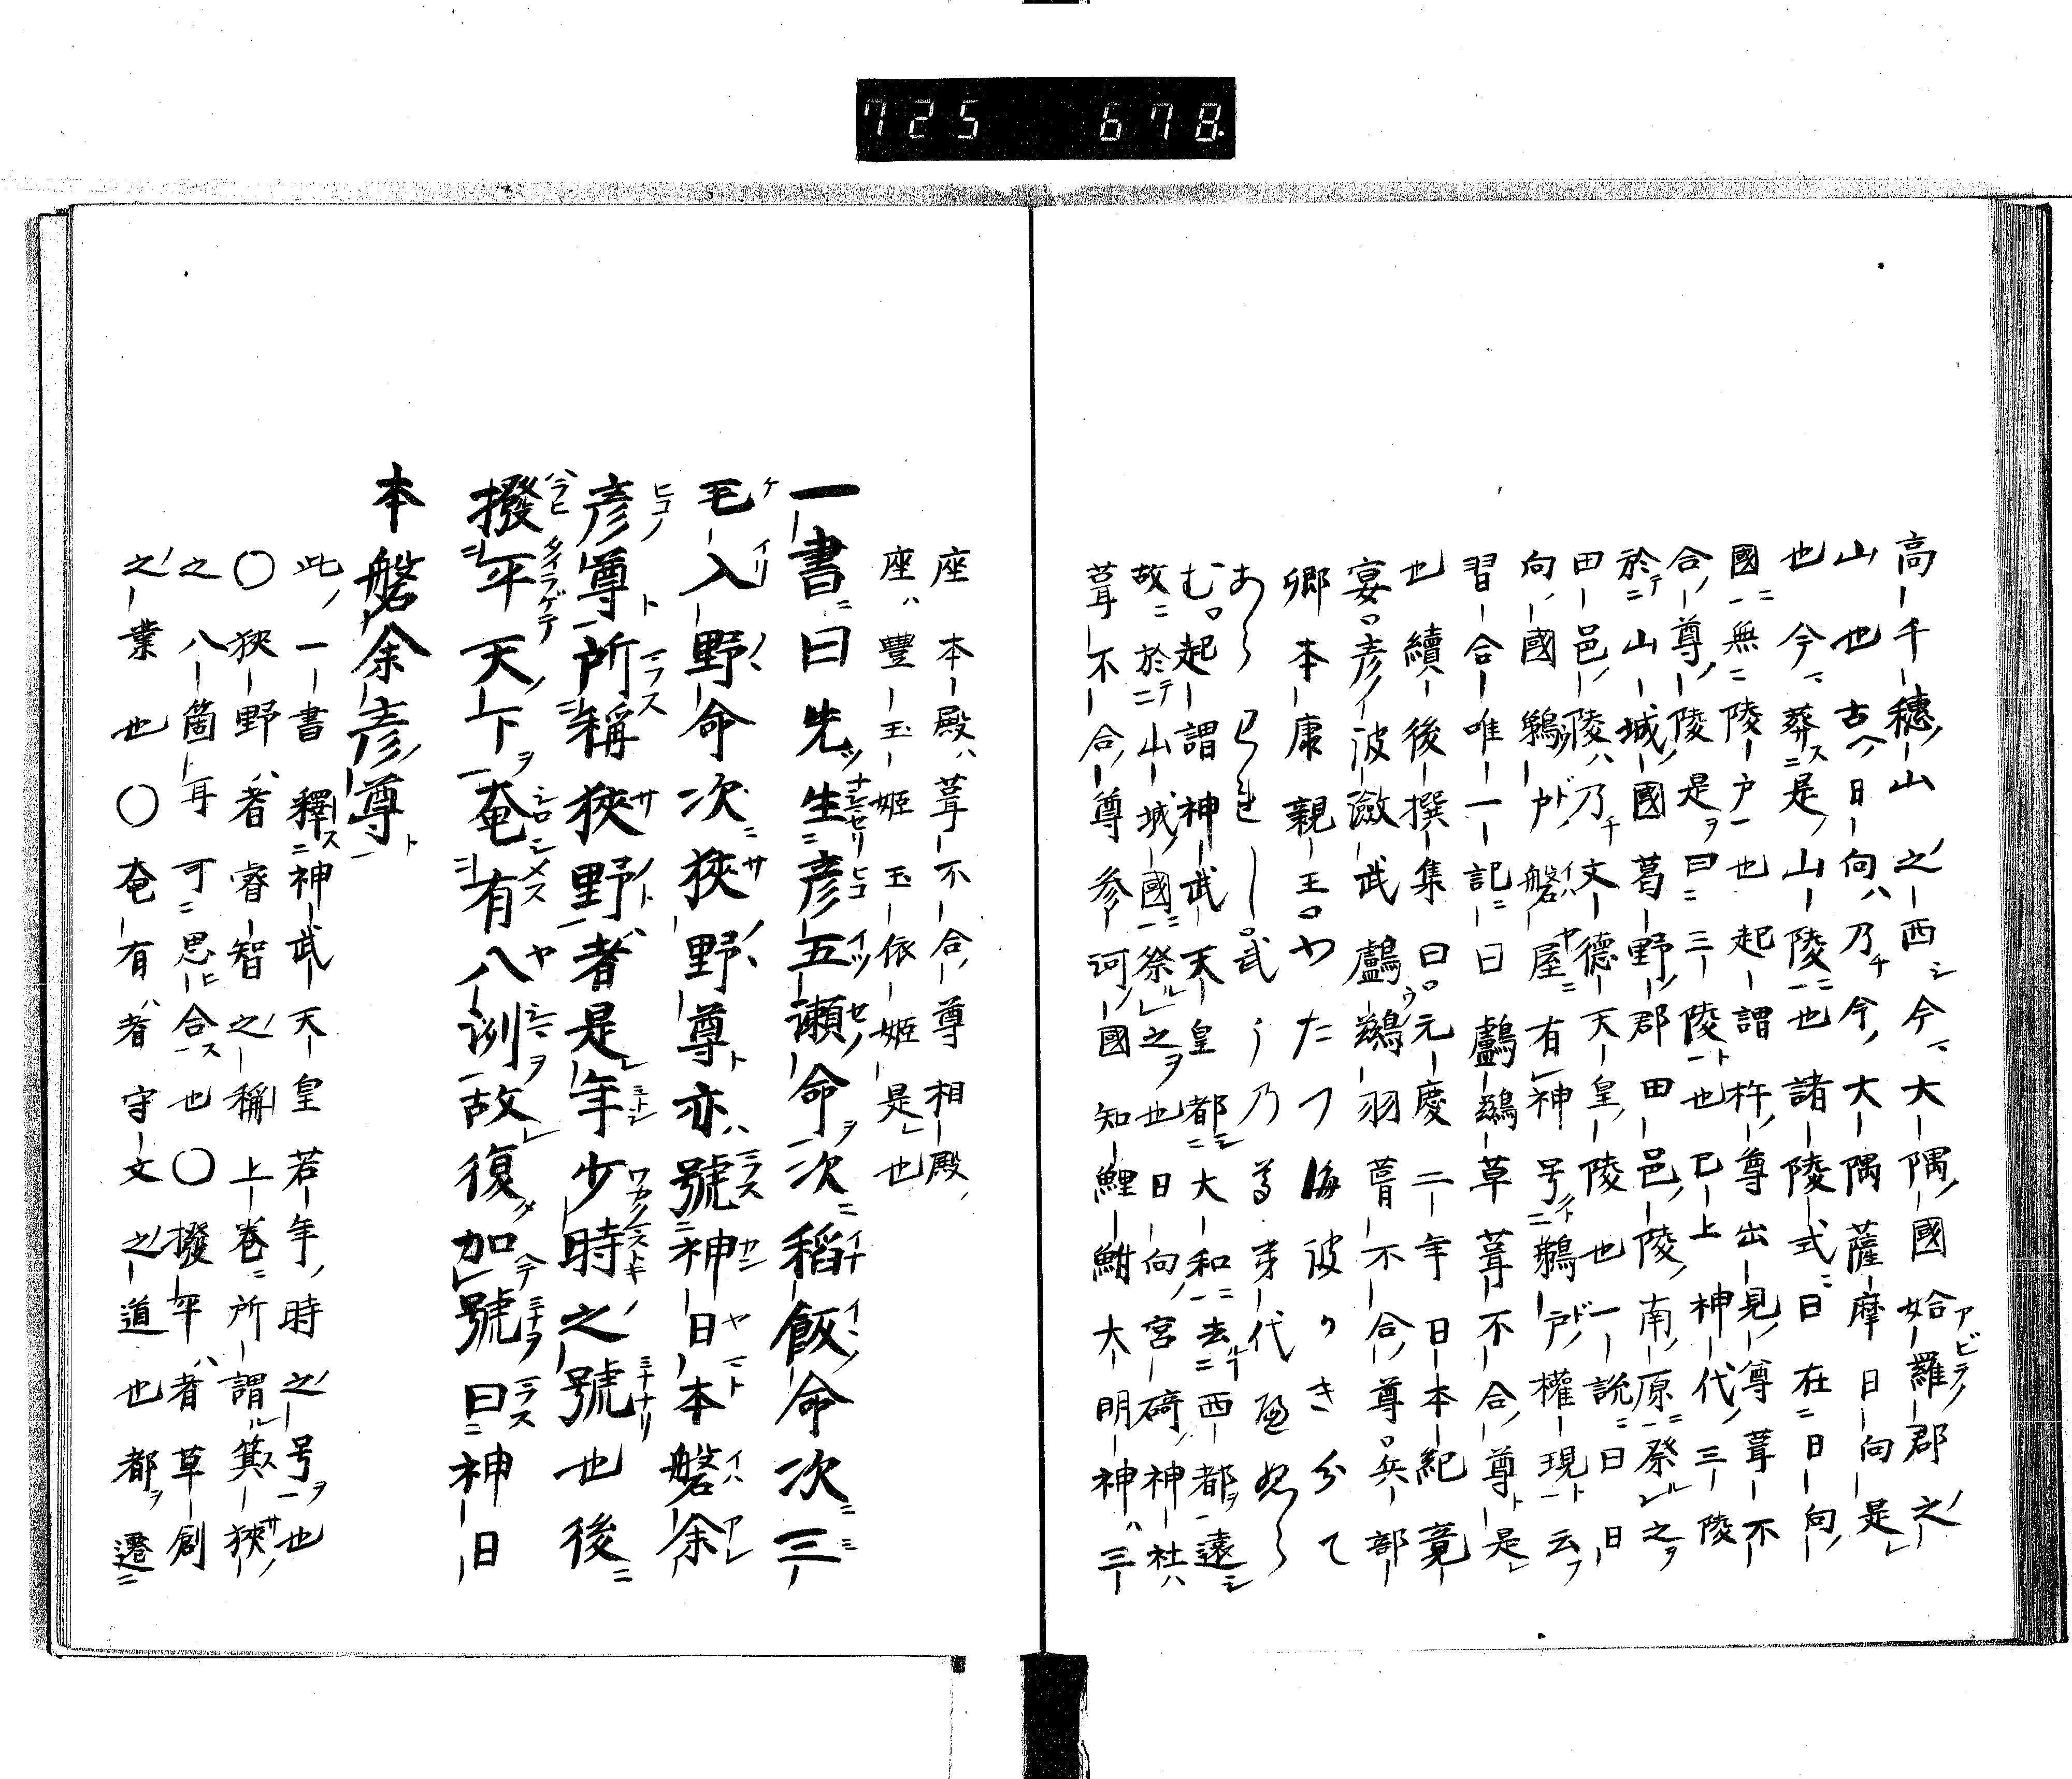 725 678.
高千穗山之西今大隅國姶羅郡之
山也古日向乃今大隅薩摩日向是
也今葬是山陵也諸陵式曰在日向
國無陵戸也起謂杵尊出見尊葺不
合尊陵是曰三陵也已上神代三陵
於山城國葛野郡田邑陵南原祭之
田邑陵乃文德天皇陵也一說曰日
向國鵜戸磐屋有神号鵜戸權現云
習合唯一記曰鸕鷀草葺不合尊是
也續後撰集曰元慶二年日本紀竟
宴彦波瀲武鸕鷀羽葺不合尊兵部
卿本康親王わたつ海彼かき分て
む起謂神武天皇都大和去西都遠
故於山城國祭之也日向宮﨑神社
葺不合尊参河國知鯉鮒大明神三
座本殿葺不合尊相殿
座豐玉姬玉依姬是也
一書曰先生彦五瀬命次稻飯命次三
毛入野命次狹野尊亦號神日本磐余
彦尊所稱狹野者是年少時之號也後
撥平天下奄有八洲故復加號曰神日
本磐余彦尊
此一書釋神武天皇若年時之号也
〇狹野者睿智之稱上卷所謂箕狹
之八箇耳可思合也〇撥平者草創
之業也〇奄有者守文之道也都遷